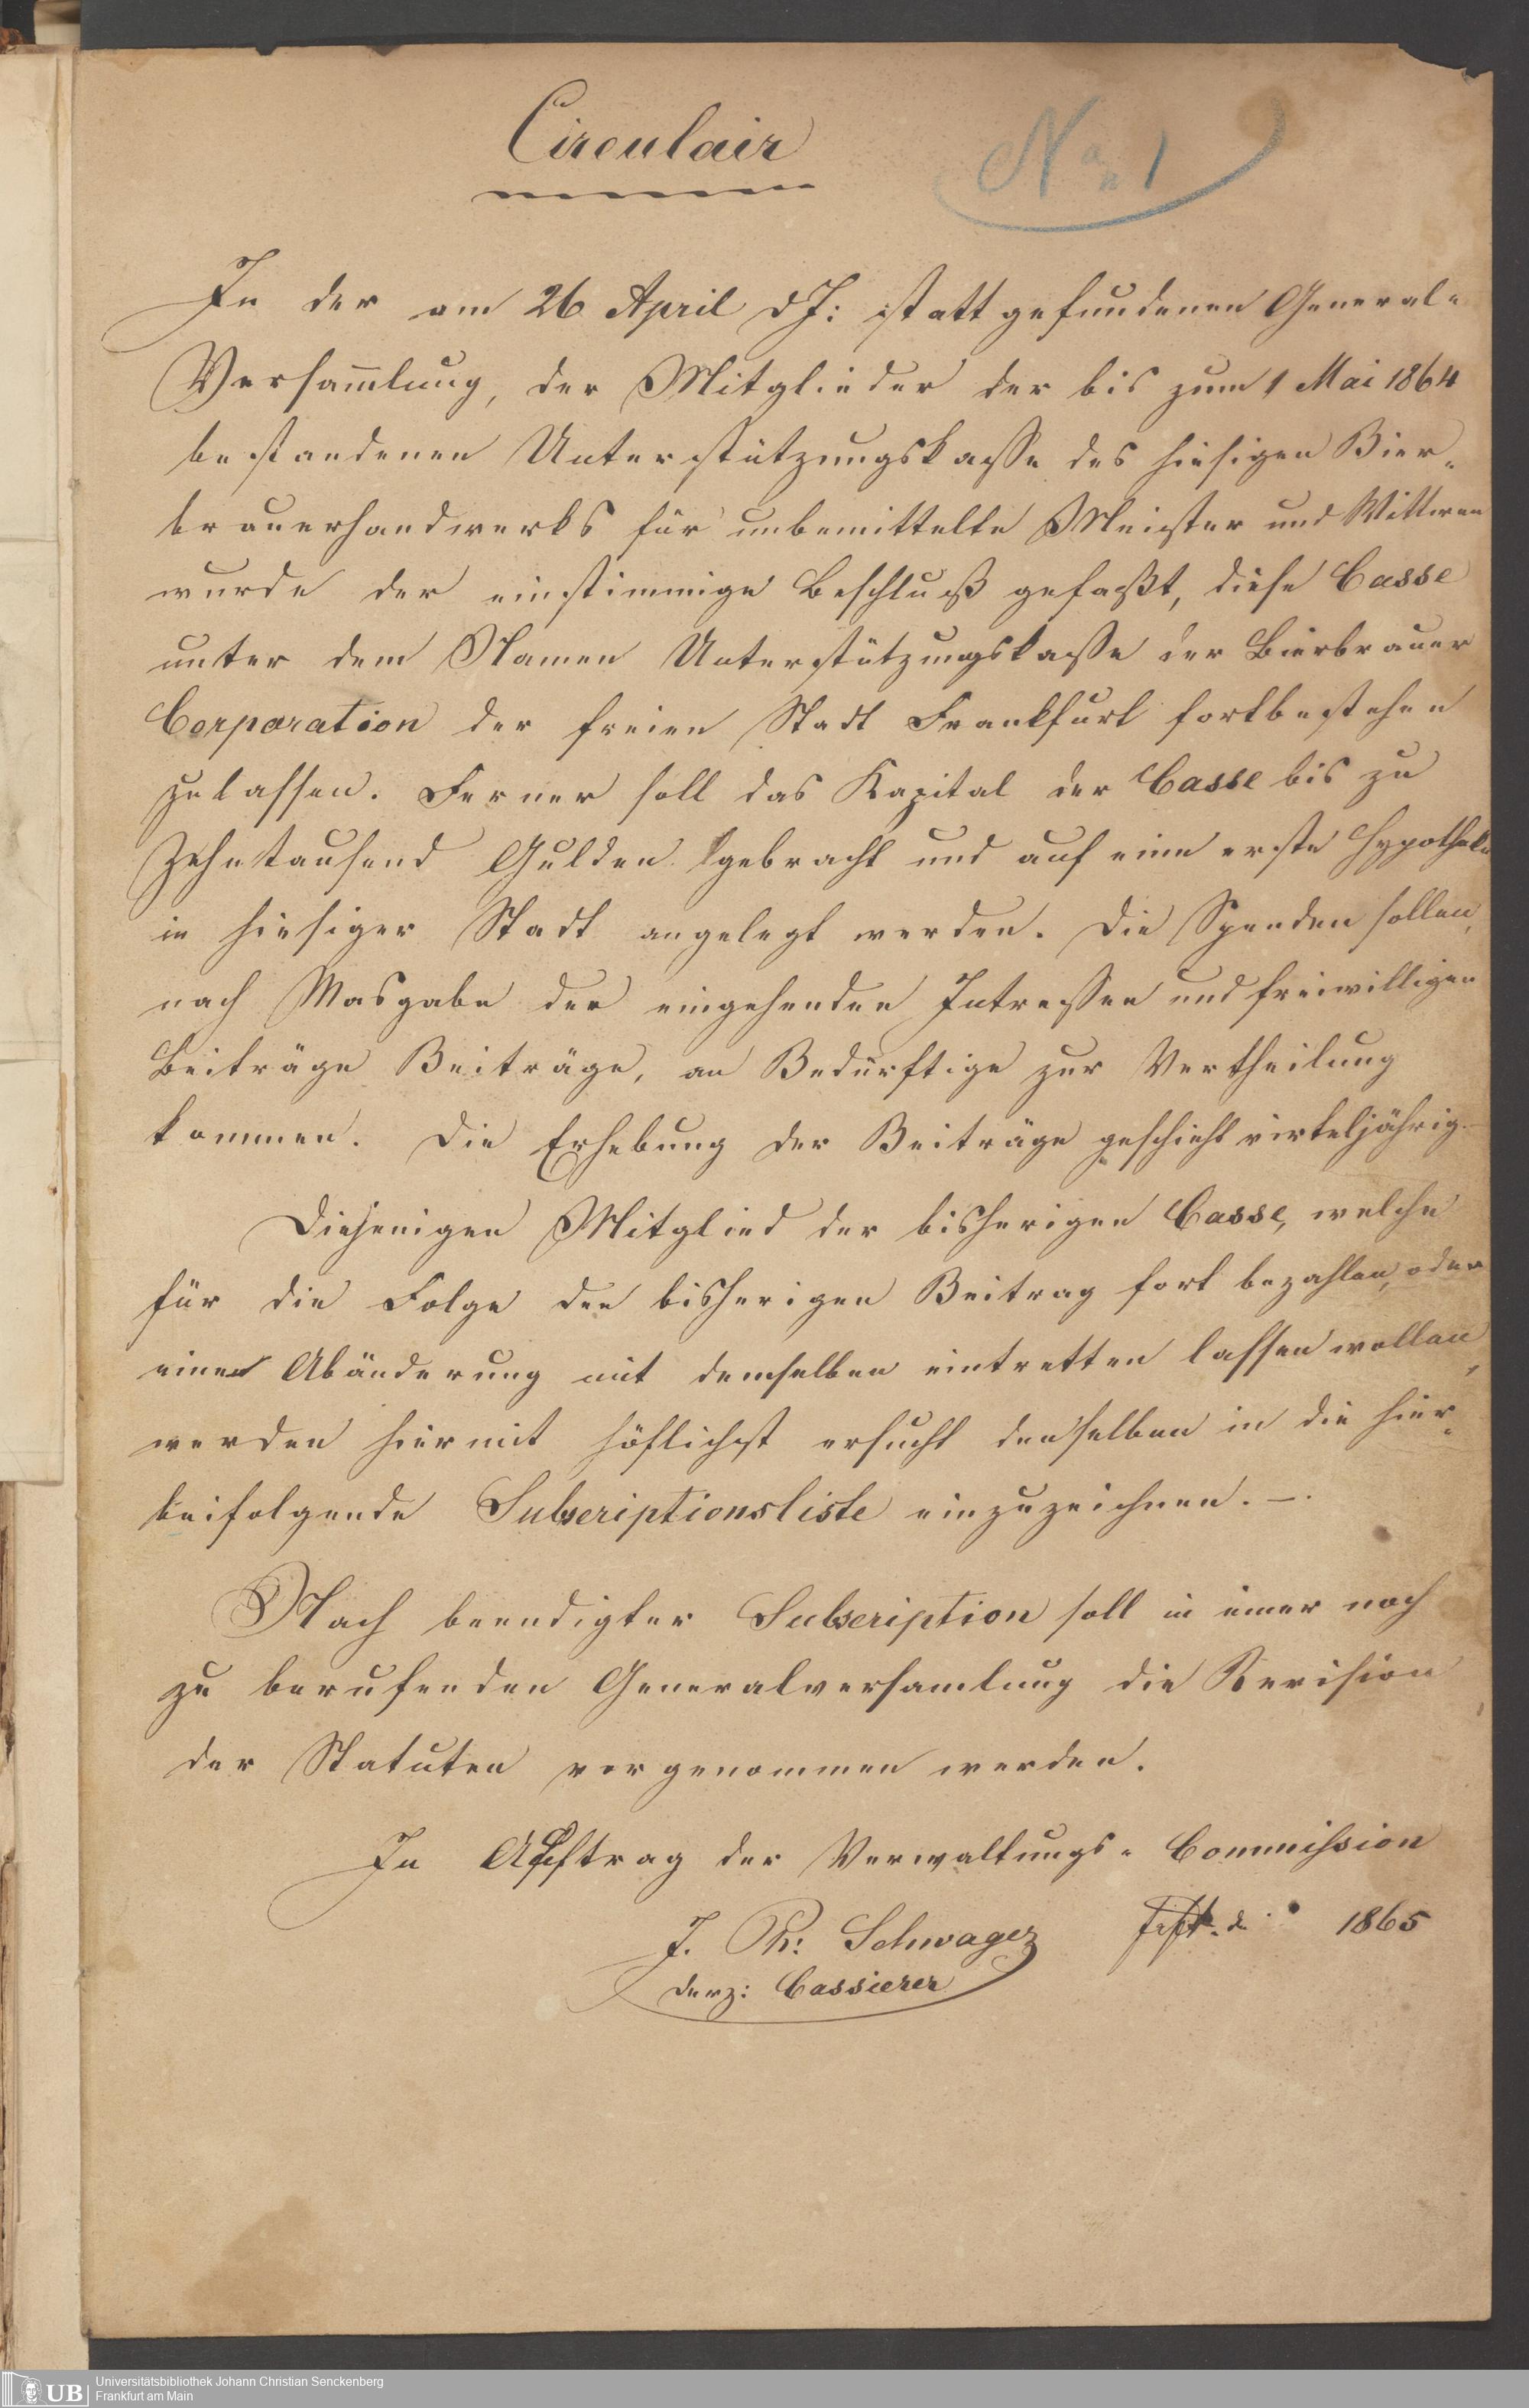 Circulair
No 1
In der am 26 April dJ: stattgefundenen General-
Versam̄lung, der Mitglieder der bis zum 1 Mai 1864
bestandenen Unterstützungskasse des hiesigen Bier-
brauerhandwerks für unbemittelte Meister und Wittwen
wurde der einstimmige Beschluß gefaßt, diese Casse
unter dem Namen Unterstützungskasse der Bierbrauer
Corporation der freien Stadt Frankfurt fortbestehen
zulassen. Ferner soll das Kapital der Casse bis zu
Zehntausend Gulden gebracht und auf eine erste Hypotheke
in hiesiger Stadt angelegt werden. Die Spenden sollen,
nach Masgabe der eingehenden Intressen und freiwilligen
Beiträge Beiträge, an Bedürftige zur Vertheilung
kommen. Die Erhebung der Beiträge geschieht virteljährig.
Diejenigen Mitglied der bisherigen Casse, welche
für die Folge den bisherigen Beitrag fort bezahlen, oder
eine Abänderung mit demselben eintretten lassen wollen,
werden hiermit höflichst ersucht denselben in die hier-
beifolgende Subscriptionsliste einzuzeichnen. —.
Nach beendigter Subscription soll in einer noch
zu berufenden Generalversamlung die Revision
der Statuten vorgenommen werden.
In Auftrag der Verwaltungs-Commission
J. Ph: Schwager 1865
derz: Cassierer
Universitätsbibliothek Johann Christian Senckenberg
UB Frankfurt am Main